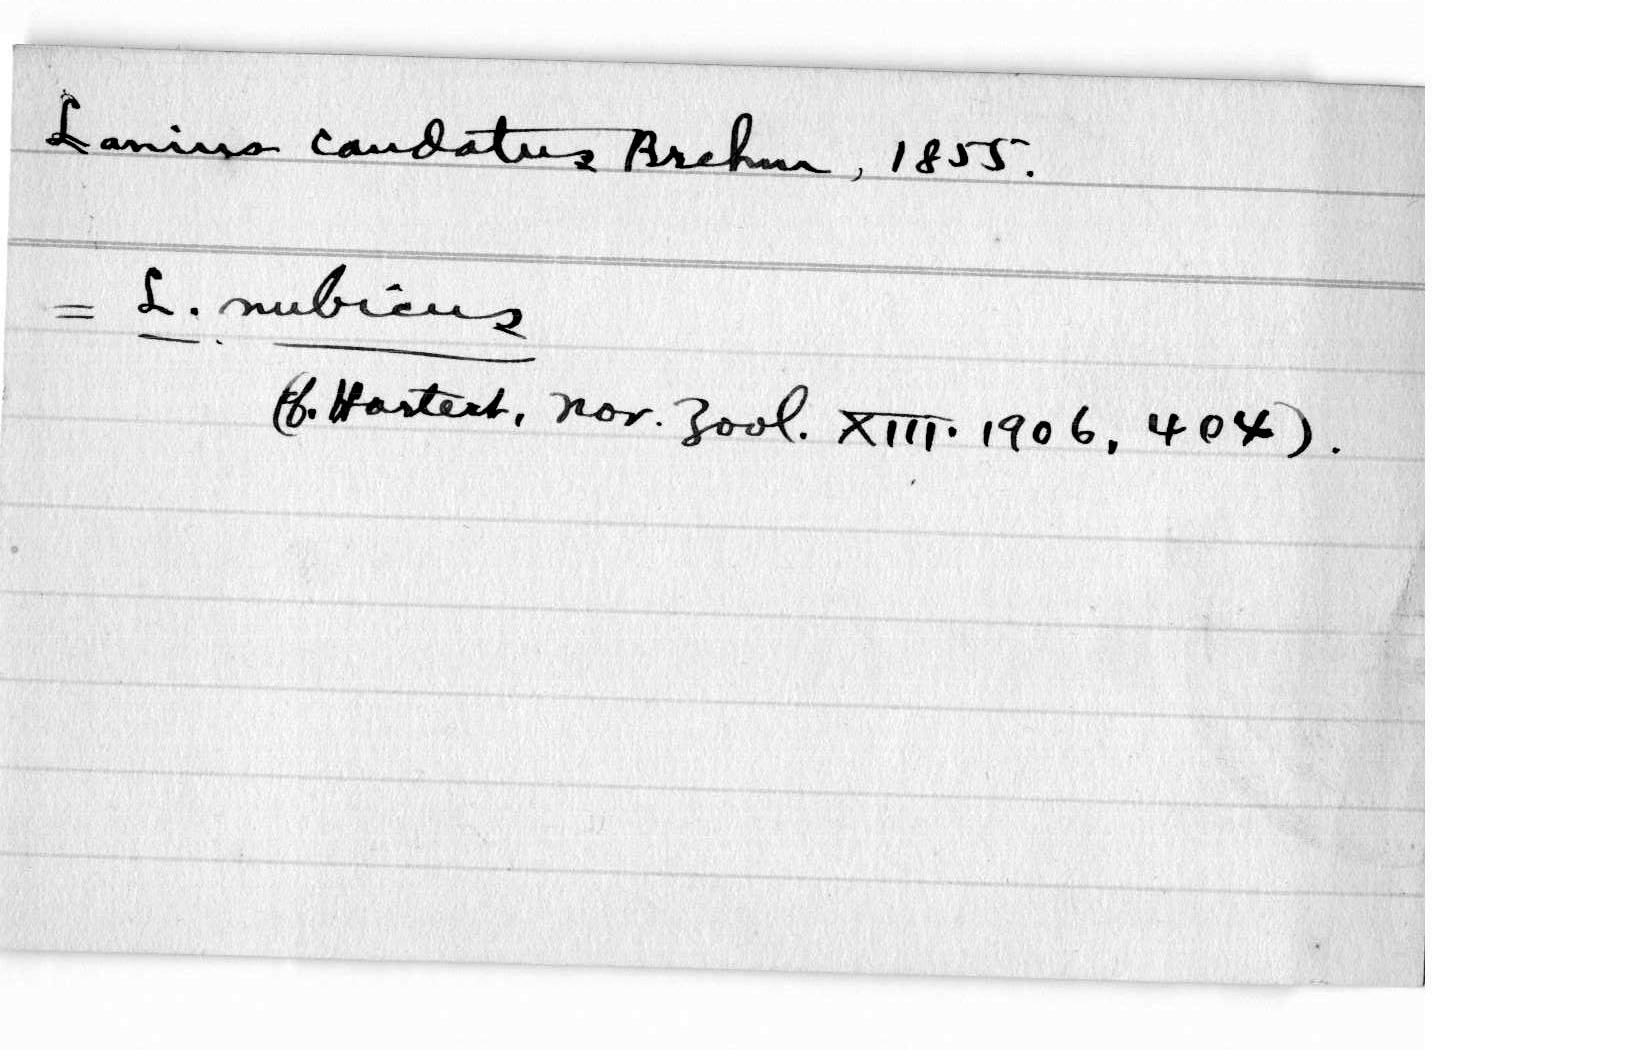 Lanius caudatus Brehm, 1855.
= L. nubicus
(cf. Hartert, Nov. Zool. XIII. 1906, 404).